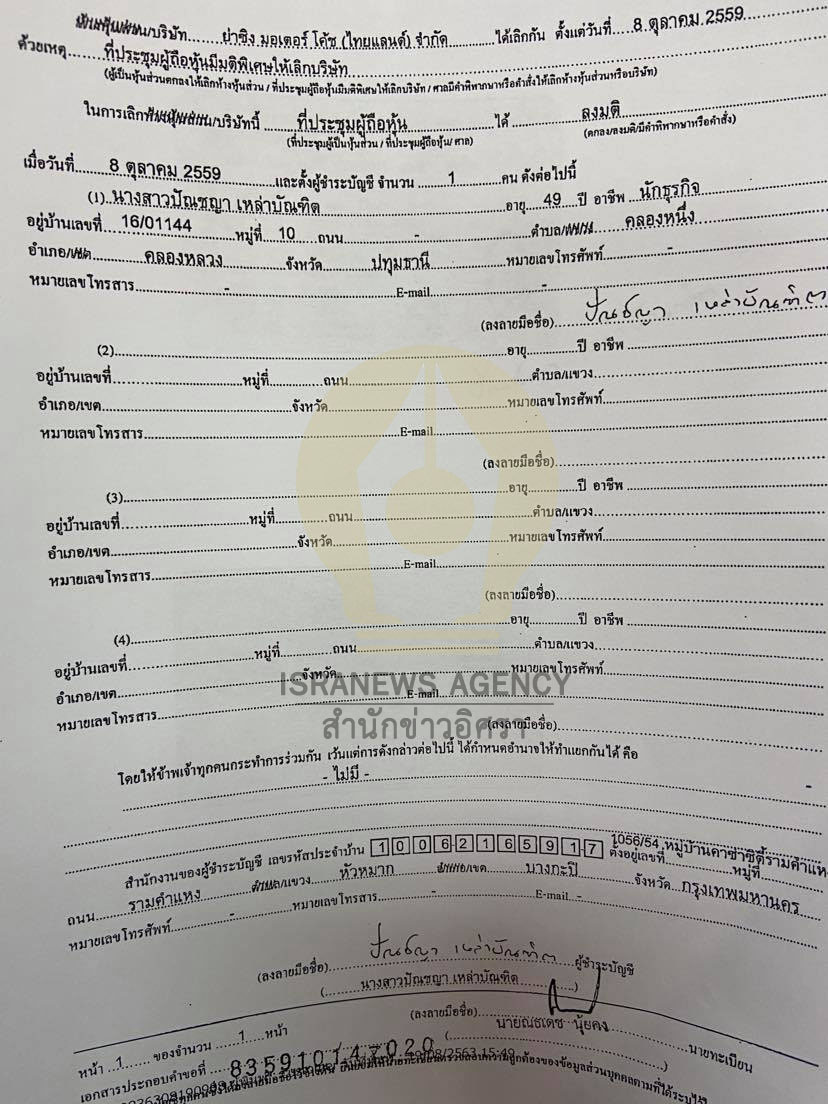 ห้างหุ้นส่วน/บริษัท ย่าซิง มอเตอร์ โค้ช (ไทยแลนด์) จำกัด ได้เลิกกัน ตั้งแต่วันที่ 8 ตุลาคม 2559
ด้วยเหตุ ที่ประชุมผู้ถือหุ้นมีมติพิเศษให้เลิกบริษัท
(ผู้เป็นหุ้นส่วนตกลงให้เลิกห้างหุ้นส่วน / ที่ประชุมผู้ถือหุ้นมีมติพิเศษให้เลิกบริษัท / ศาลมีคำพิพากษาหรือคำสั่งให้เลิกห้างหุ้นส่วนหรือบริษัท)
ในการเลิกห้างหุ้นส่วน/บริษัทนี้ ที่ประชุมผู้ถือหุ้น ได้ ลงมติ
(ที่ประชุมผู้เป็นหุ้นส่วน / ที่ประชุมผู้ถือหุ้น/ ศาล) (ตกลง/ลงมติ/มีคำพิพากษาหรือคำสั่ง)
เมื่อวันที่ 8 ตุลาคม 2559 และตั้งผู้ชำระบัญชี จำนวน 1 คน ดังต่อไปนี้
(1) นางสาวปัณชญา เหล่าบัณฑิต อายุ 49 ปี อาชีพ นักธุรกิจ
อยู่บ้านเลขที่ 16/01144 หมู่ที่ 10 ถนน - ตำบล/แขวง คลองหนึ่ง
อำเภอ/เขต คลองหลวง จังหวัด ปทุมธานี หมายเลขโทรศัพท์ -
หมายเลขโทรสาร - E-mail -
(ลงลายมือชื่อ) ปัณชญา เหล่าบัณฑิต
(2) อายุ ปี อาชีพ
อยู่บ้านเลขที่ หมู่ที่ ถนน ตำบล/แขวง
อำเภอ/เขต จังหวัด หมายเลขโทรศัพท์
หมายเลขโทรสาร E-mail
(ลงลายมือชื่อ)
(3) อายุ ปี อาชีพ
อยู่บ้านเลขที่ หมู่ที่ ถนน ตำบล/แขวง
อำเภอ/เขต จังหวัด หมายเลขโทรศัพท์
หมายเลขโทรสาร E-mail
(ลงลายมือชื่อ)
(4) อายุ ปี อาชีพ
อยู่บ้านเลขที่ หมู่ที่ ถนน ตำบล/แขวง
อำเภอ/เขต จังหวัด หมายเลขโทรศัพท์
ISRANEWS AGENCY
หมายเลขโทรสาร E-mail
สำนักข่าวอิศรา
(ลงลายมือชื่อ)
โดยให้ข้าพเจ้าทุกคนกระทำการร่วมกัน เว้นแต่การดังกล่าวต่อไปนี้ ได้กำหนดอำนาจให้ทำแยกกันได้ คือ
- ไม่มี - -
สำนักงานของผู้ชำระบัญชี เลขรหัสประจำบ้าน 10062165917 ตั้งอยู่เลขที่ 1056/54 หมู่บ้านคาซ่าซิตี้รามคำแหง หมู่ที่
ถนน รามคำแหง ตำบล/แขวง หัวหมาก อำเภอ/เขต บางกะปิ จังหวัด กรุงเทพมหานคร
หมายเลขโทรศัพท์ - หมายเลขโทรสาร - E-mail -
(ลงลายมือชื่อ) ปัณชญา เหล่าบัณฑิต ผู้ชำระบัญชี
( นางสาวปัณชญา เหล่าบัณฑิต )
(ลงลายมือชื่อ) นายทะเบียน
( นายณธเดช นุ้ยคง )
หน้า 1 ของจำนวน 1 หน้า
เอกสารประกอบคำขอที่ 835910147020